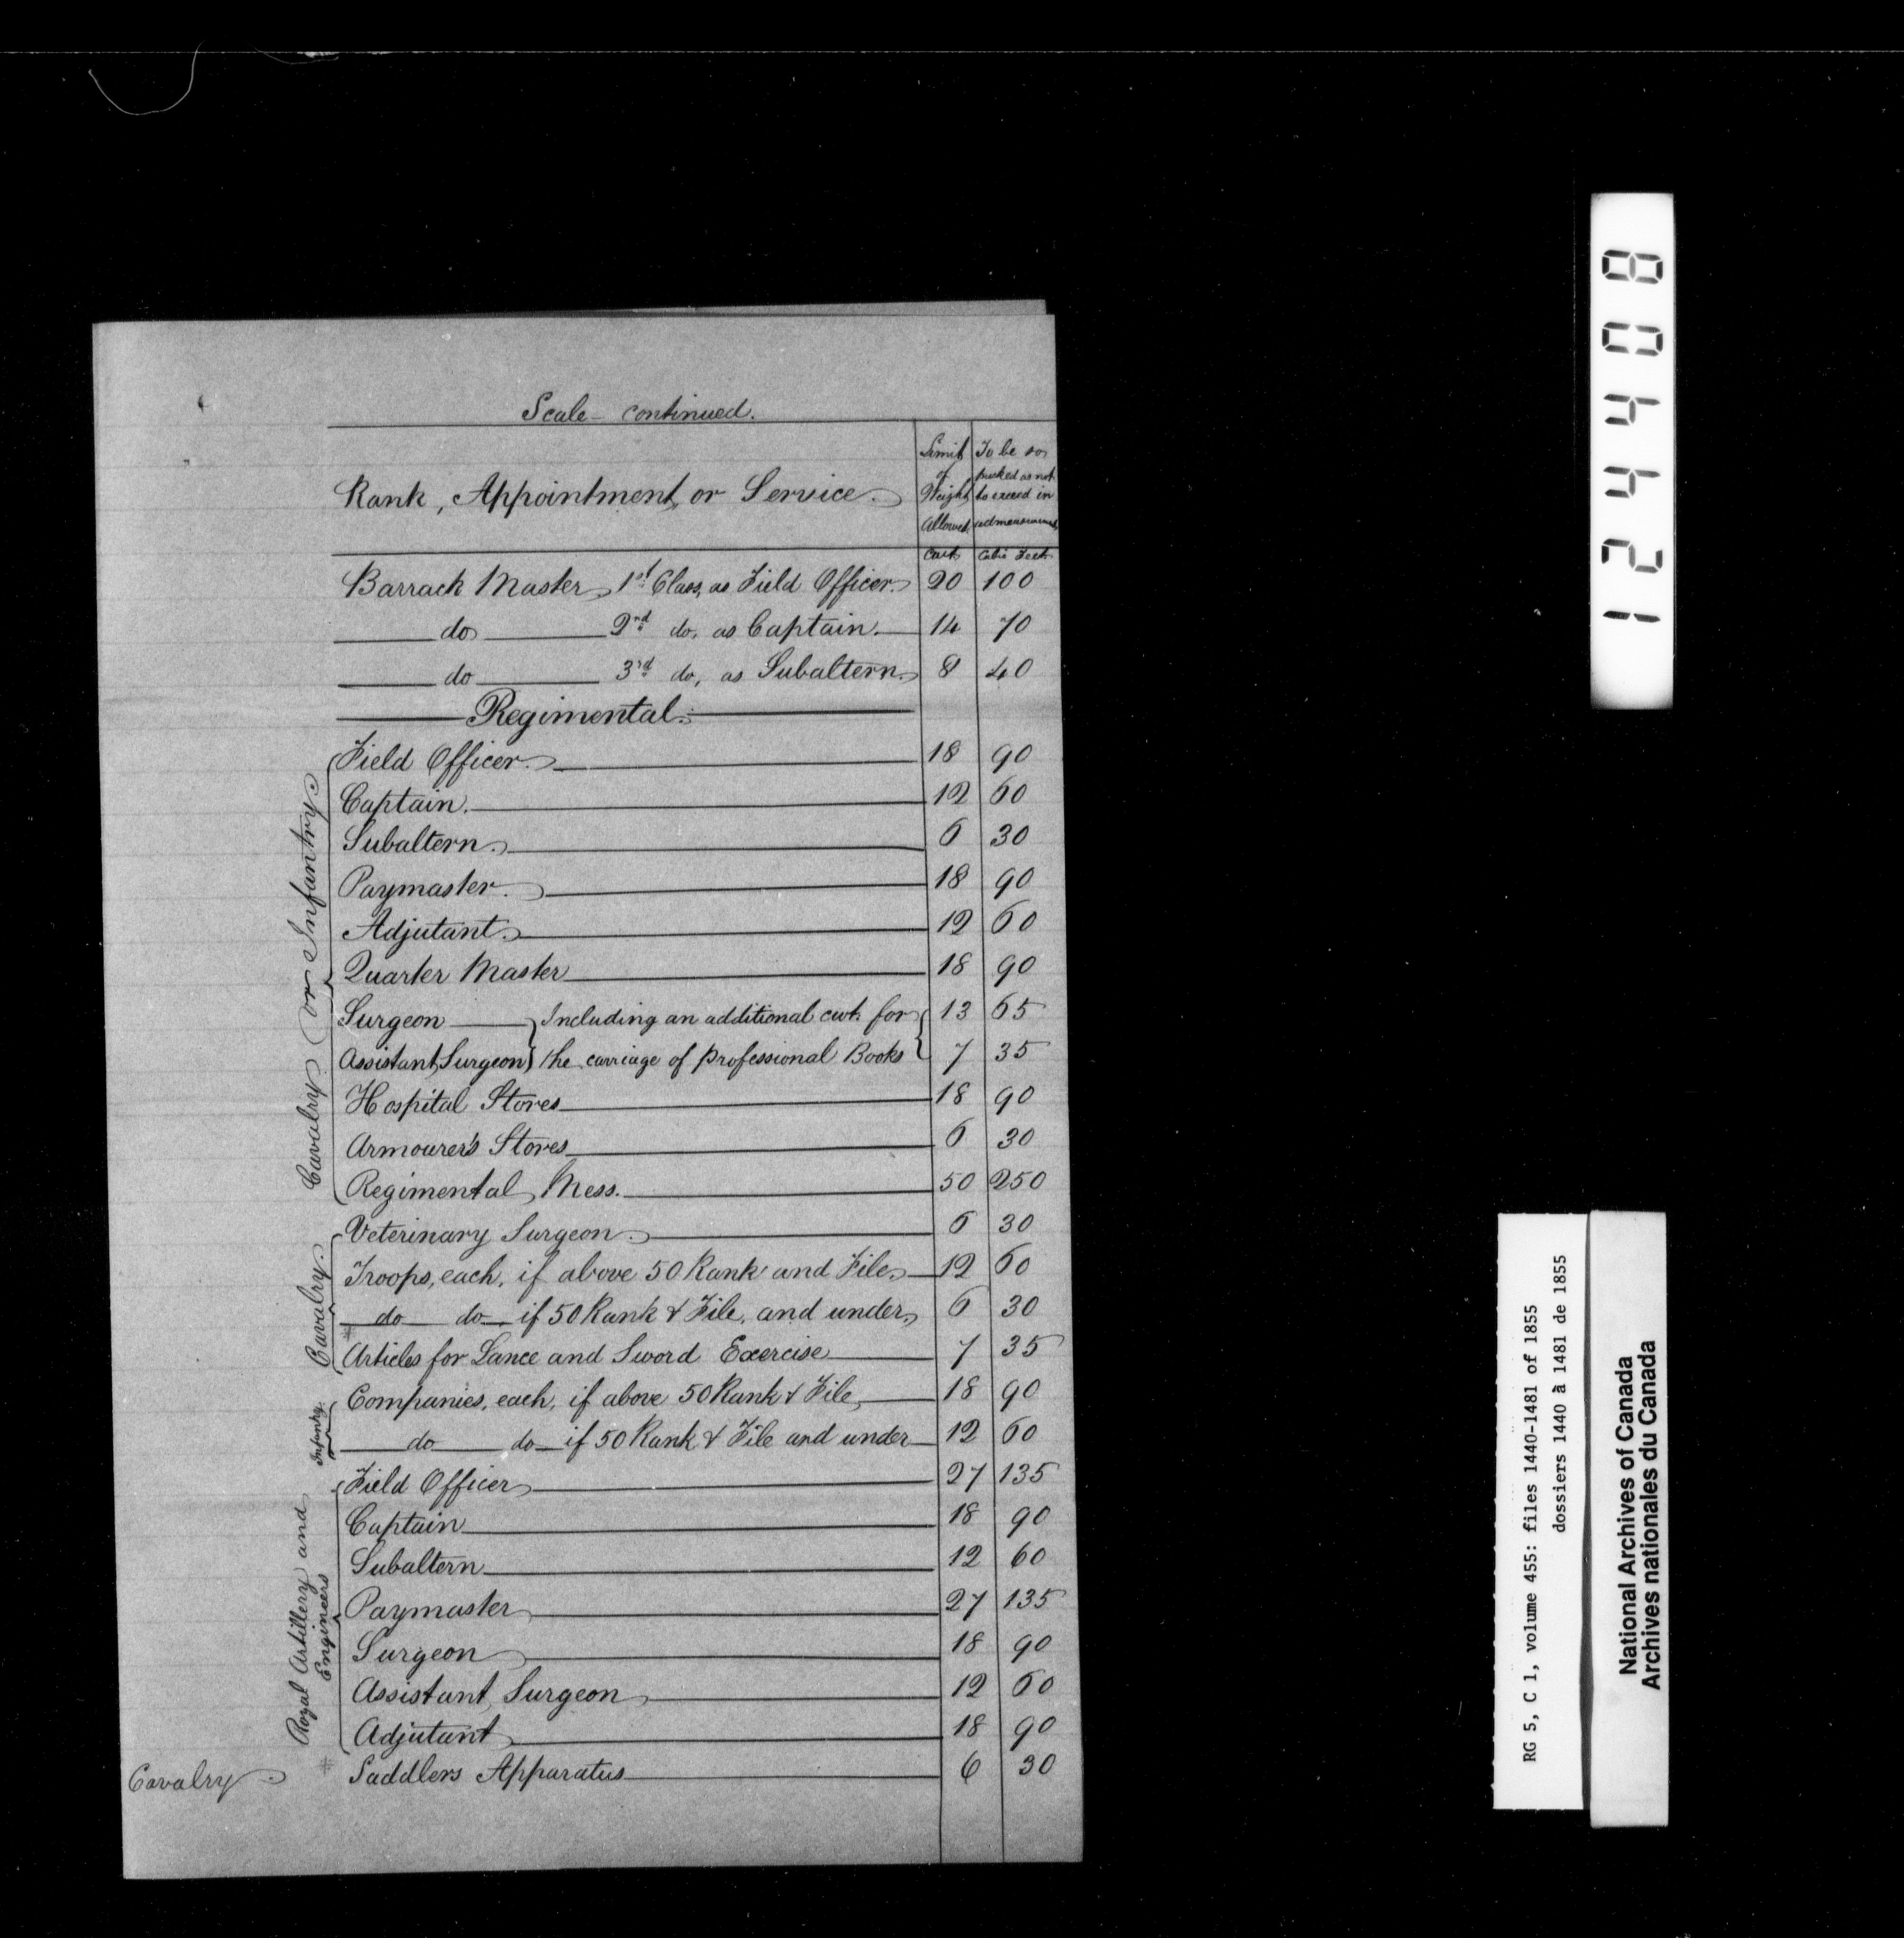 Scale - continued.
Rank, Appointment, or Service.
Limit of Weight Allowed.
To be so packed as not to exceed in admeasurement
Cwt. Cubic Feet
Barrack Master, 1st Class, as Field Officer. 20 100
do 2nd do, as Captain. 14 70
do 3rd do, as Subaltern. 8 40
Regimental.
Cavalry or Infantry
Field Officer. 18 90
Captain. 12 60
Subaltern. 6 30
Paymaster. 18 90
Adjutant. 12 60
Quarter Master 18 90
Surgeon } Including an additional cwt. for { 13 65
Assistant Surgeon } the carriage of professional Books { 7 35
Hospital Stores 18 90
Armourer's Stores 6 30
Regimental Mess. 50 250
Cavalry.
Veterinary Surgeon. 6 30
Troops, each, if above 50 Rank and File. 12 60
do do if 50 Rank & File, and under. 6 30
# Articles for Lance and Sword Exercise 7 35
Infantry.
Companies, each, if above 50 Rank & File, 18 90
do do if 50 Rank & File and under 12 60
Royal Artillery and Engineers
Field Officer 27 135
Captain 18 90
Subaltern 12 60
Paymaster 27 135
Surgeon 18 90
Assistant Surgeon 12 60
Adjutant 18 90
Cavalry # Saddlers Apparatus 6 30
124408
RG 5, C 1, volume 455: files 1440-1481 of 1855
dossiers 1440 à 1481 de 1855
National Archives of Canada
Archives nationales du Canada